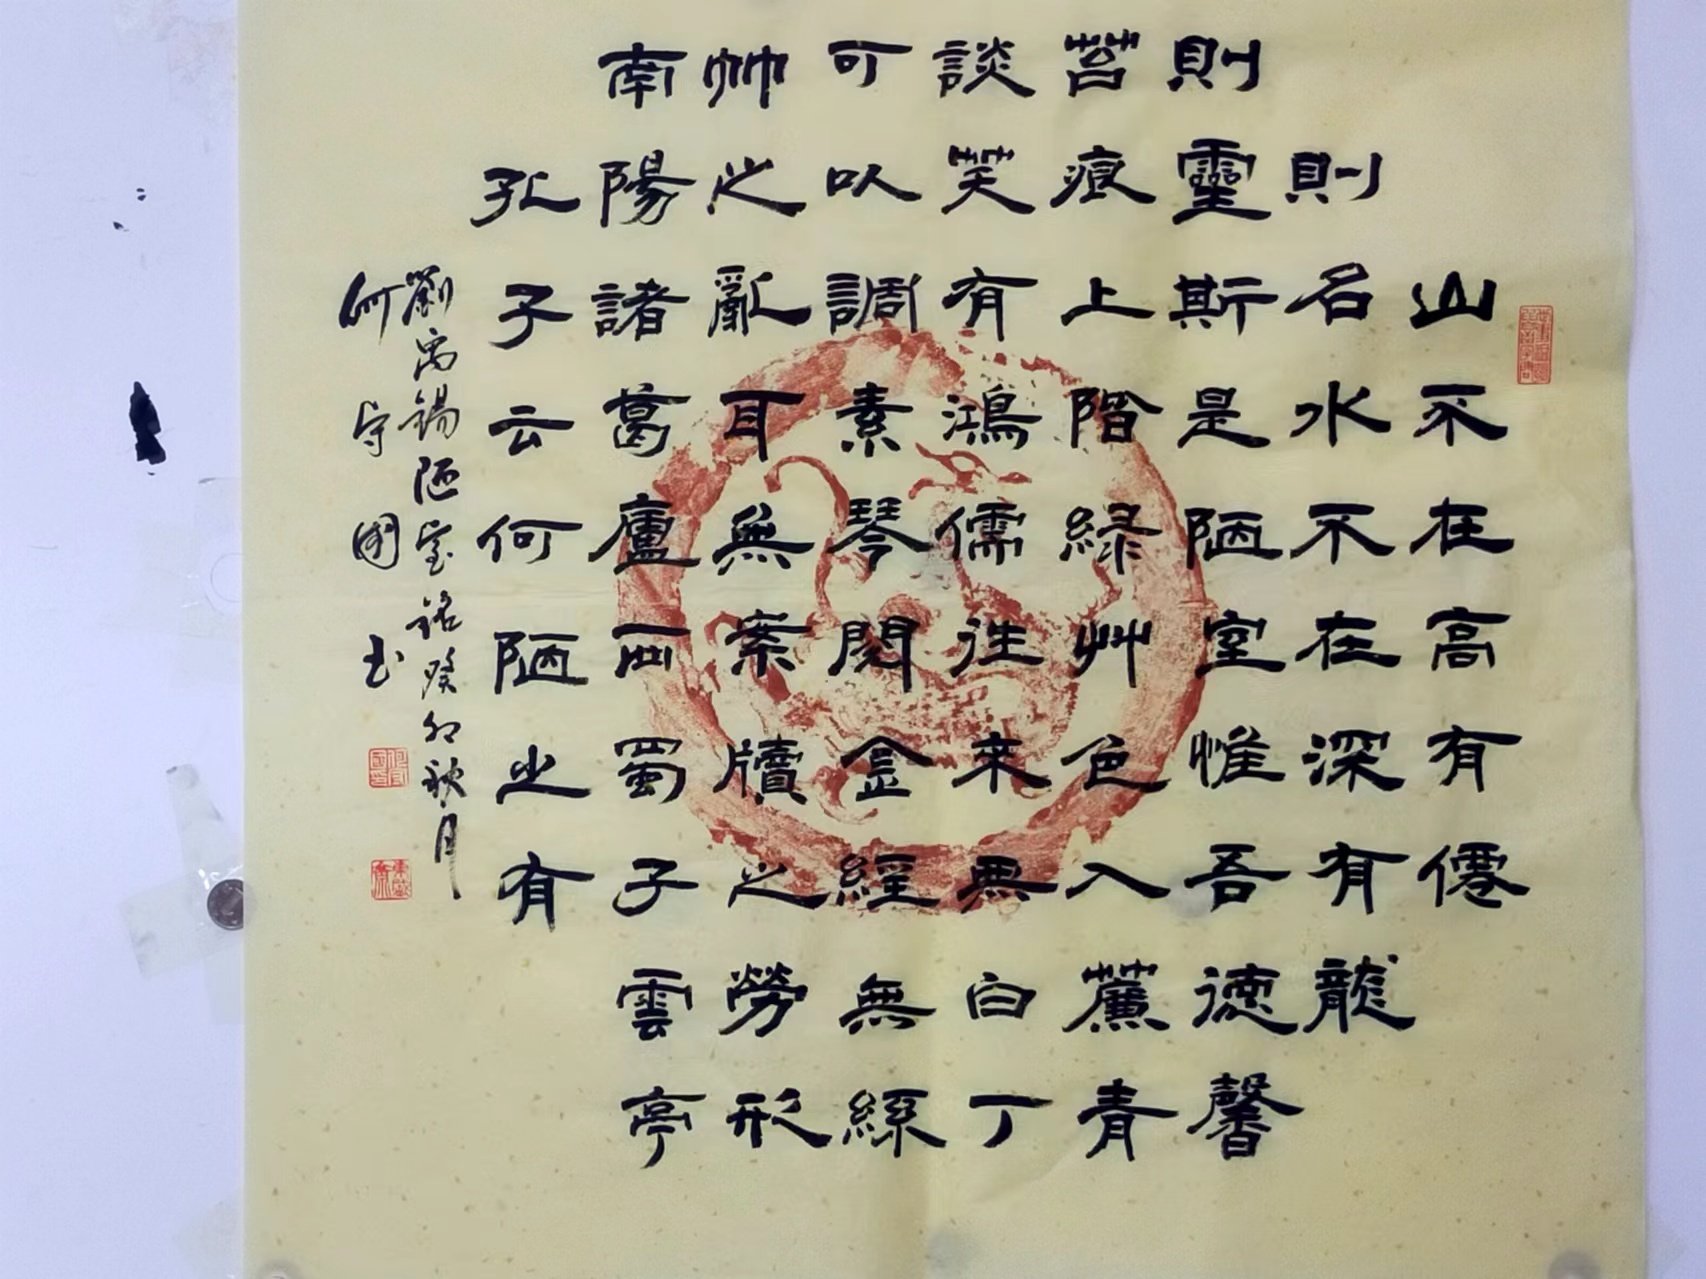 山不在高有僊
則名水不在深有龍
則靈斯是陋室惟吾德馨
苔痕上階緑艸色入薕青
談笑有鴻儒往來無白丁
可以調素琴閱金經無絲
竹之亂耳無案牘之勞形
南陽諸葛廬西蜀子雲亭
孔子云何陋之有
劉禹錫陋室銘癸卯秋月
何守國书